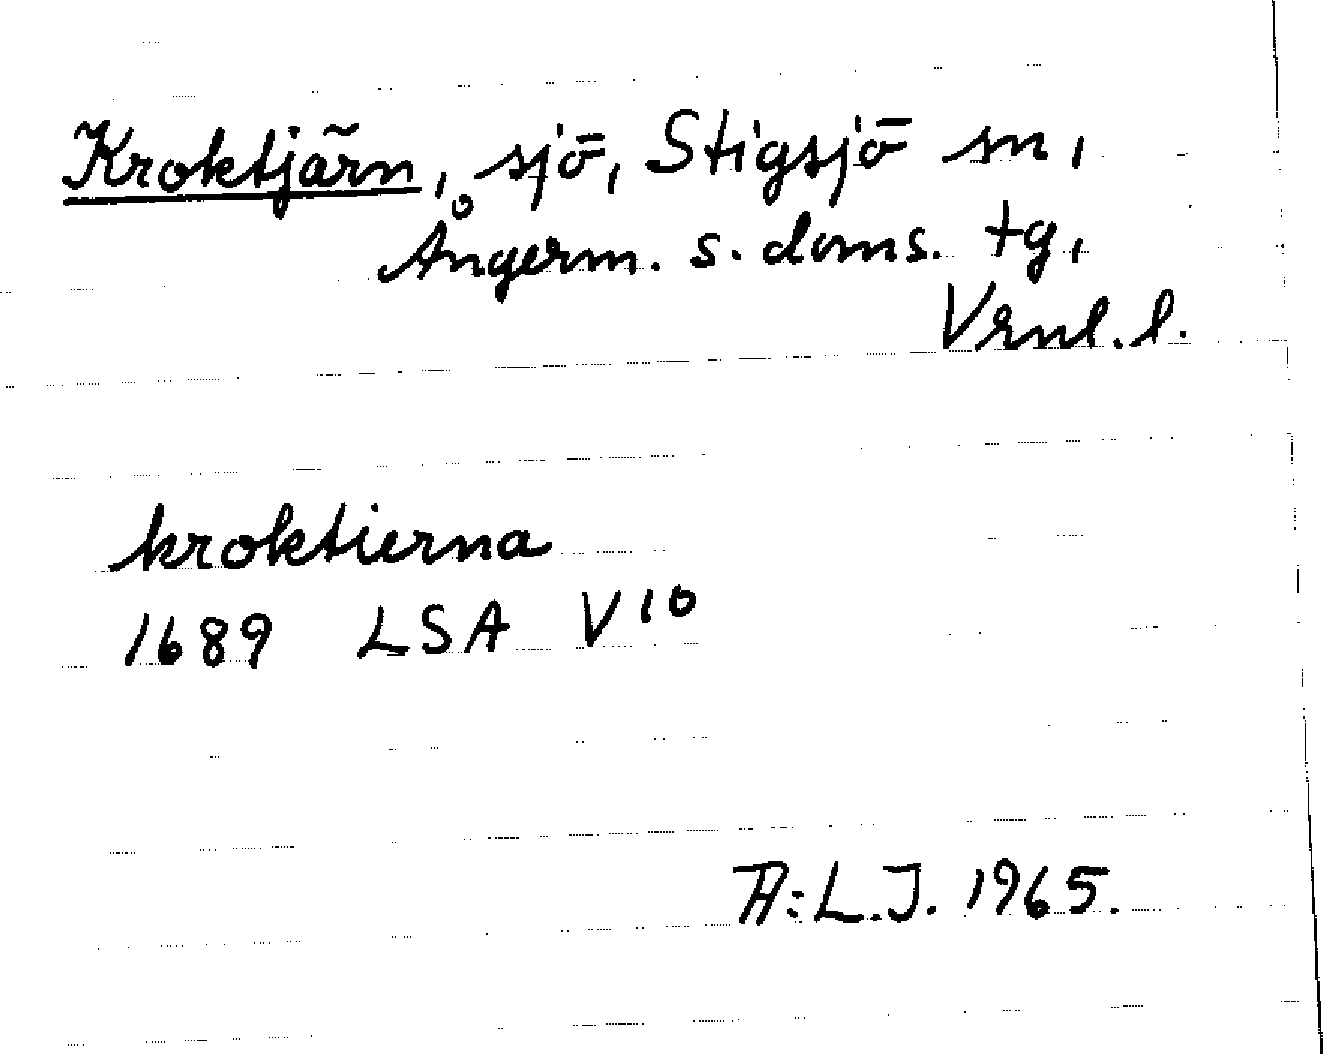 Kroktjärn, sjö, Stigsjö sn,
Ångerm. s. doms. tg,
Vrnl. l.
kroktierna
1689 LSA V 10
A:L.J. 1965.